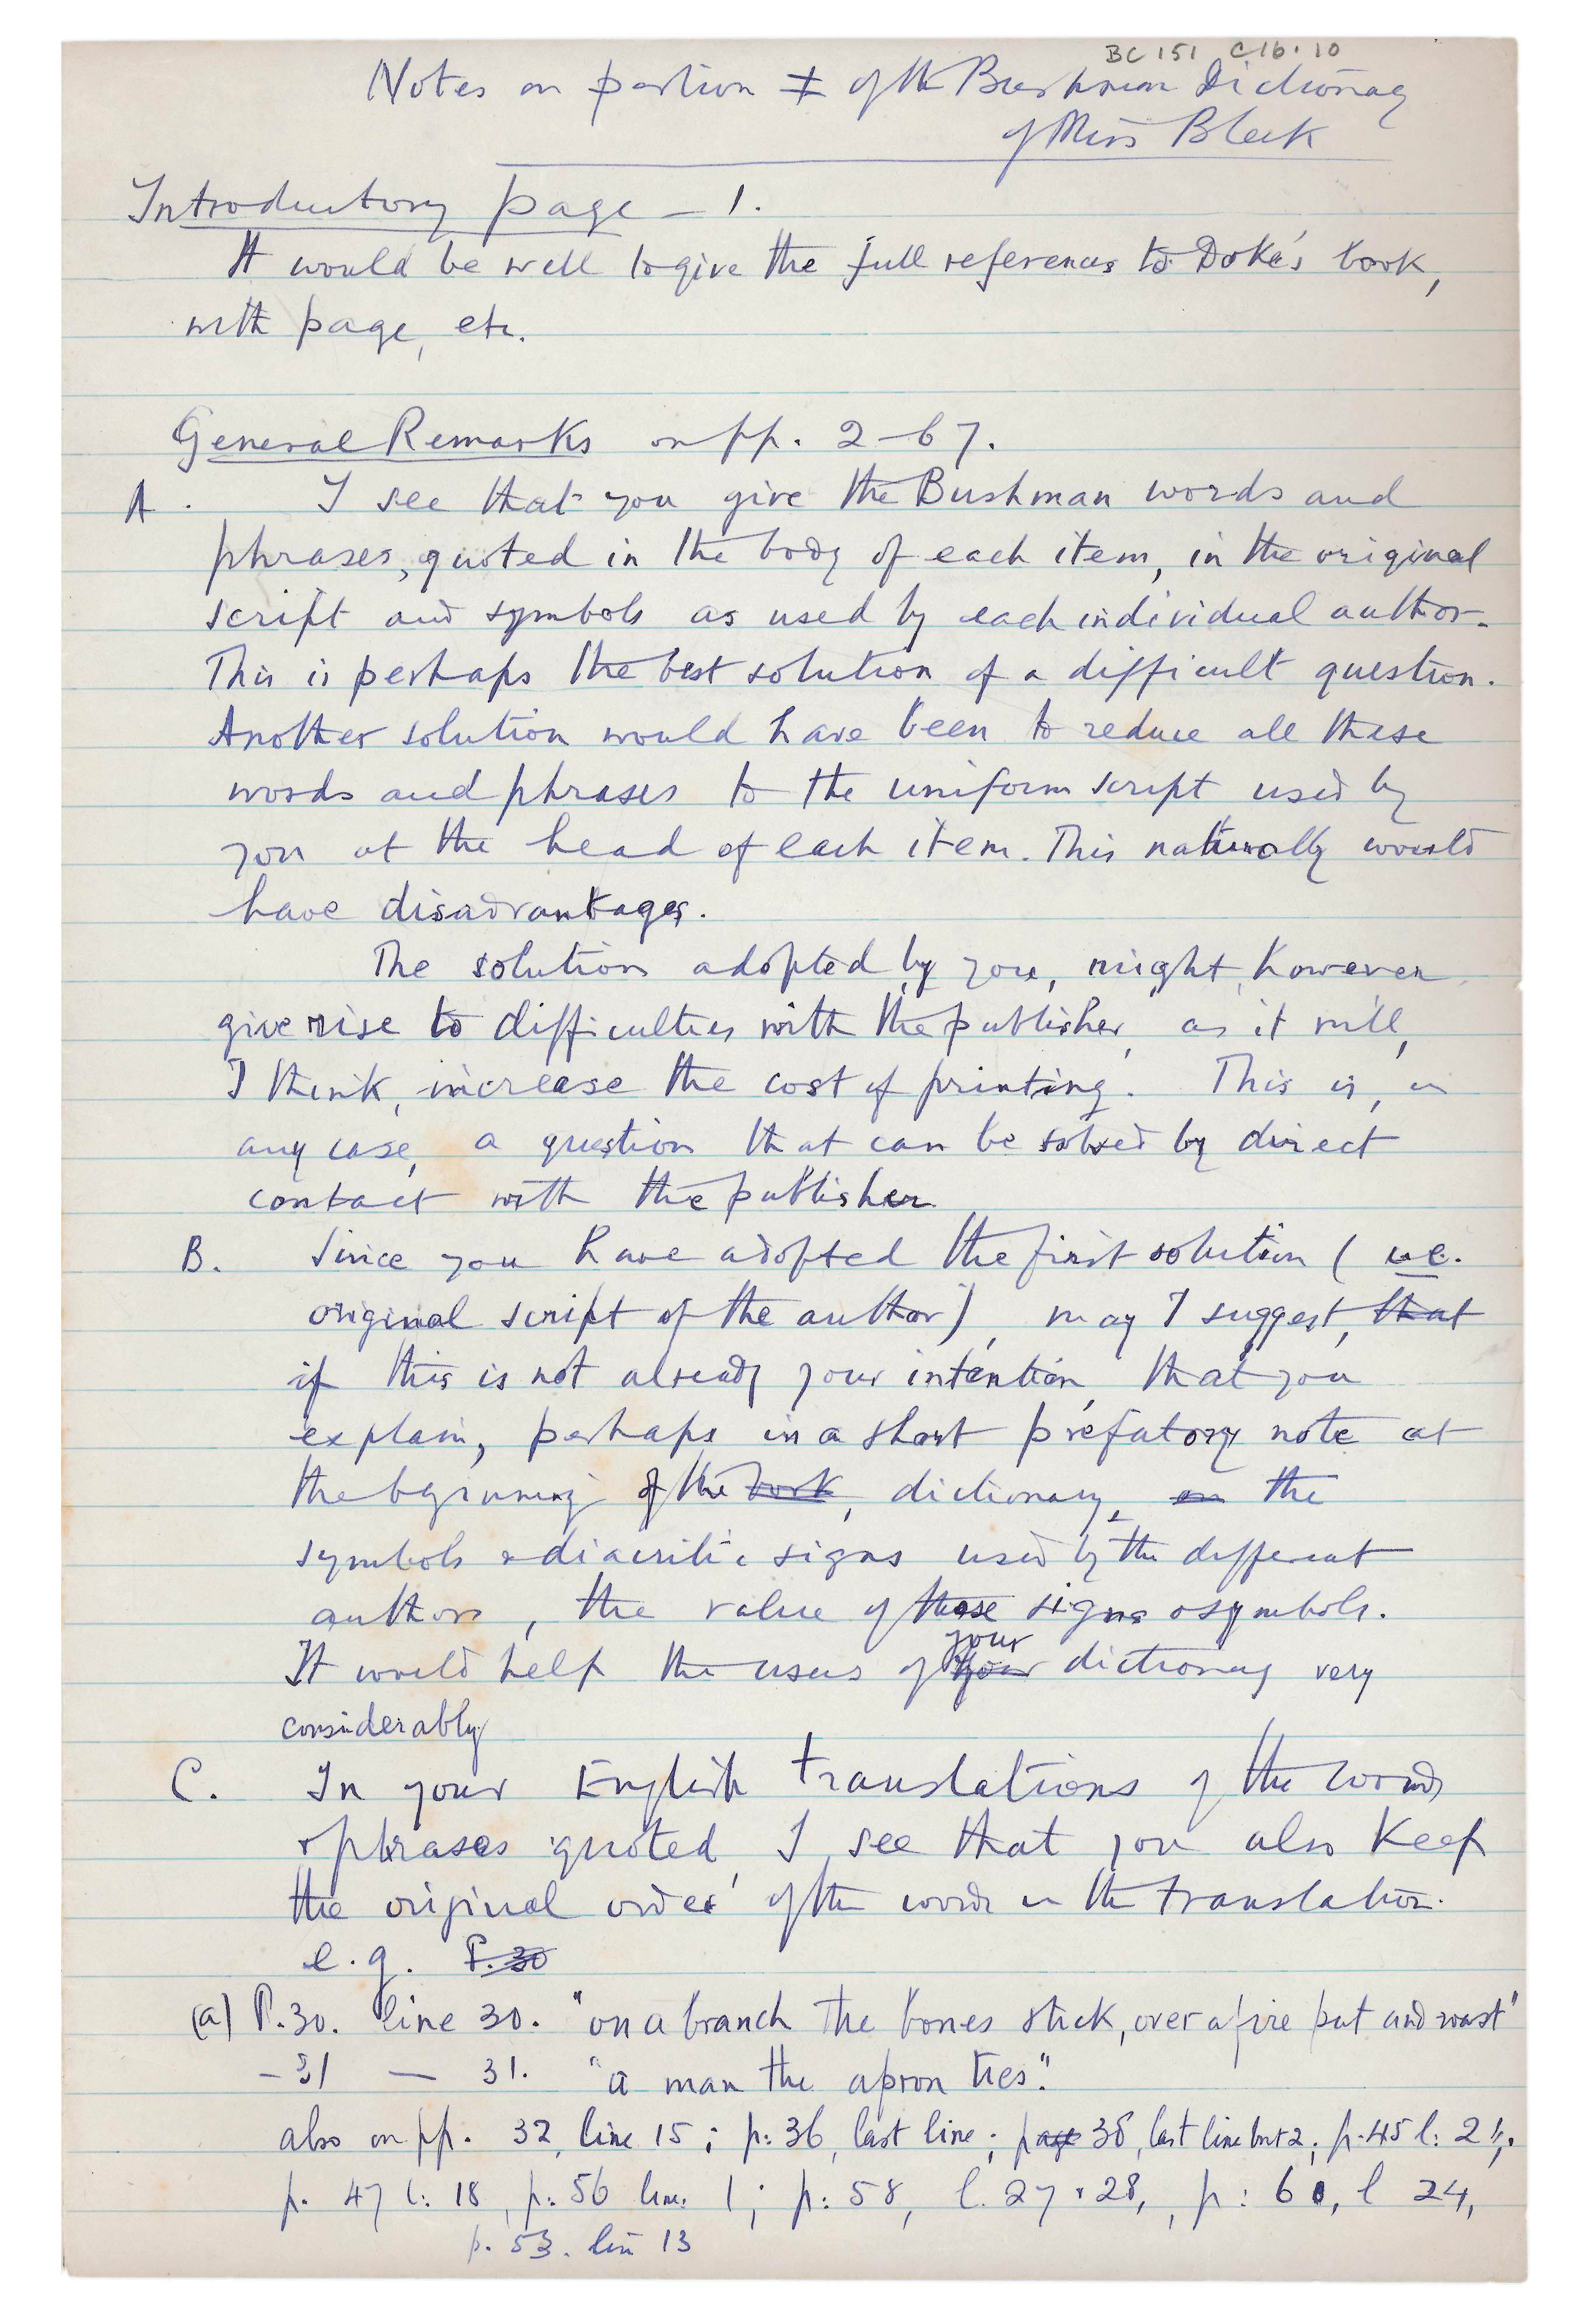 BC 151 C16.10
Notes on portion ǂ of the Bushman Dictionary
of Miss Bleek
Introductory page – 1.
It would be well to give the full references to Doke's book,
with page, etc.
General Remarks on pp. 2–67.
A. I see that you give the Bushman words and
phrases, quoted in the body of each item, in the original
script and symbols as used by each individual author.
This is perhaps the best solution of a difficult question.
Another solution would have been to reduce all these
words and phrases to the uniform script used by
you at the head of each item. This naturally would
have disadvantages.
The solution adopted by you, might, however
give rise to difficulties with the publisher, as it will,
I think, increase the cost of printing. This is, in
any case, a question that can be solved by direct
contact with the publisher
B. Since you have adopted the first solution (i.e.
original script of the author), may I suggest, that
if this is not already your intention, that you
explain, perhaps in a short prefatory note at
the beginning of the work, dictionary, on the
symbols & diacritic signs used by the different
authors, the value of these signs & symbols.
It would help the users of your dictionary very
considerably
C. In your English translations of the words
& phrases quoted, I see that you also keep
the original order of the words in the translation.
e.g. P. 30
(a) P. 30. line 30. "on a branch the bones stick, over a fire put and roast"
– 31 — 31. "a man the apron ties."
also on pp. 32, line 15; p: 36, last line; page 38, last line but 2; p. 45 l: 21,
p. 47 l: 18, p: 56 line 1; p: 58, l. 27 & 28, p: 60, l 24,
p. 53. line 13